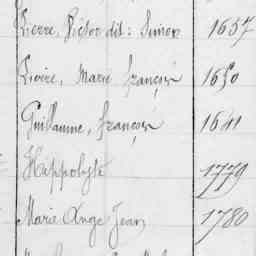 Pierre, Victor dit: Simon 1657
Pierre, Marie françois 1650
Guillaume, françois 1641
Hippolyte 1779
Marie Ange Jean 1780